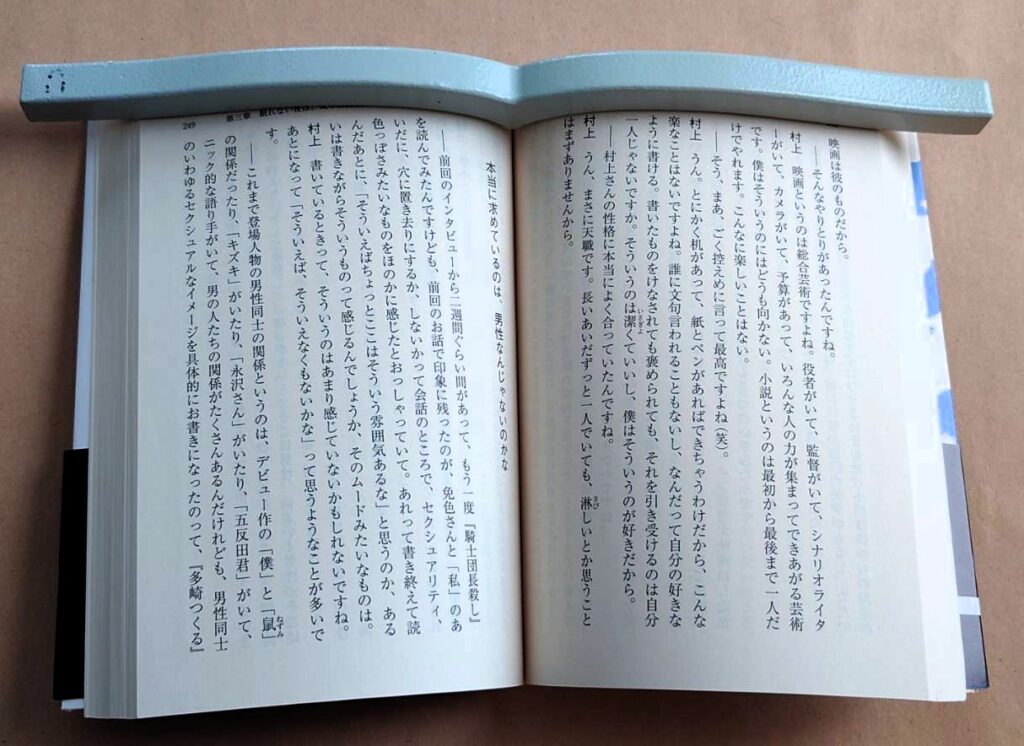 映画は彼のものだから。
――そんなやりとりがあったんですね。
村上　映画というのは総合芸術ですよね。役者がいて、監督がいて、シナリオライタ
ーがいて、カメラがいて、予算があって、いろんな人の力が集まってできあがる芸術
です。僕はそういうのにはどうも向かない。小説というのは最初から最後まで一人だ
けでやれます。こんなに楽しいことはない。
――そう、まあ、ごく控えめに言って最高ですよね（笑）。
村上　うん。とにかく机があって、紙とペンがあればできちゃうわけだから、こんな
楽なことはないですよね。誰に文句言われることもないし、なんだって自分の好きな
ように書ける。書いたものをけなされても褒められても、それを引き受けるのは自分
一人じゃないですか。そういうのは潔くていいし、僕はそういうのが好きだから。
いさぎよ
――村上さんの性格に本当によく合っていたんですね。
村上　うん、まさに天職です。長いあいだずっと一人でいても、淋しいとか思うこと
さび
はまずありませんから。
本当に求めているのは、男性なんじゃないのかな
――前回のインタビューから二週間ぐらい間があって、もう一度『騎士団長殺し』
を読んでみたんですけども、前回のお話で印象に残ったのが、免色さんと「私」のあ
いだに、穴に置き去りにするか、しないかって会話のところで、セクシュアリティ、
色っぽさみたいなものをほのかに感じたとおっしゃっていて。あれって書き終えて読
んだあとに、「そういえばちょっとここはそういう雰囲気あるな」と思うのか、ある
いは書きながらそういうものって感じるんでしょうか、そのムードみたいなものは。
村上　書いているときって、そういうのはあまり感じていないかもしれないですね。
あとになって「そういえば、そういえなくもないかな」って思うようなことが多いで
す。
――これまで登場人物の男性同士の関係というのは、デビュー作の「僕」と「鼠」
ねずみ
の関係だったり、「キズキ」がいたり、「永沢さん」がいたり、「五反田君」がいて、
ニック的な語り手がいて、男の人たちの関係がたくさんあるんだけれども、男性同士
のいわゆるセクシュアルなイメージを具体的にお書きになったのって、『多崎つくる』
249
第三章　眠れない夜は、